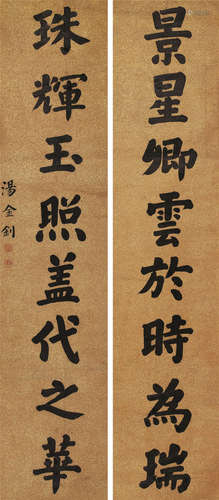 景星卿雲於時為瑞
珠輝玉照盖代之華
湯金釗